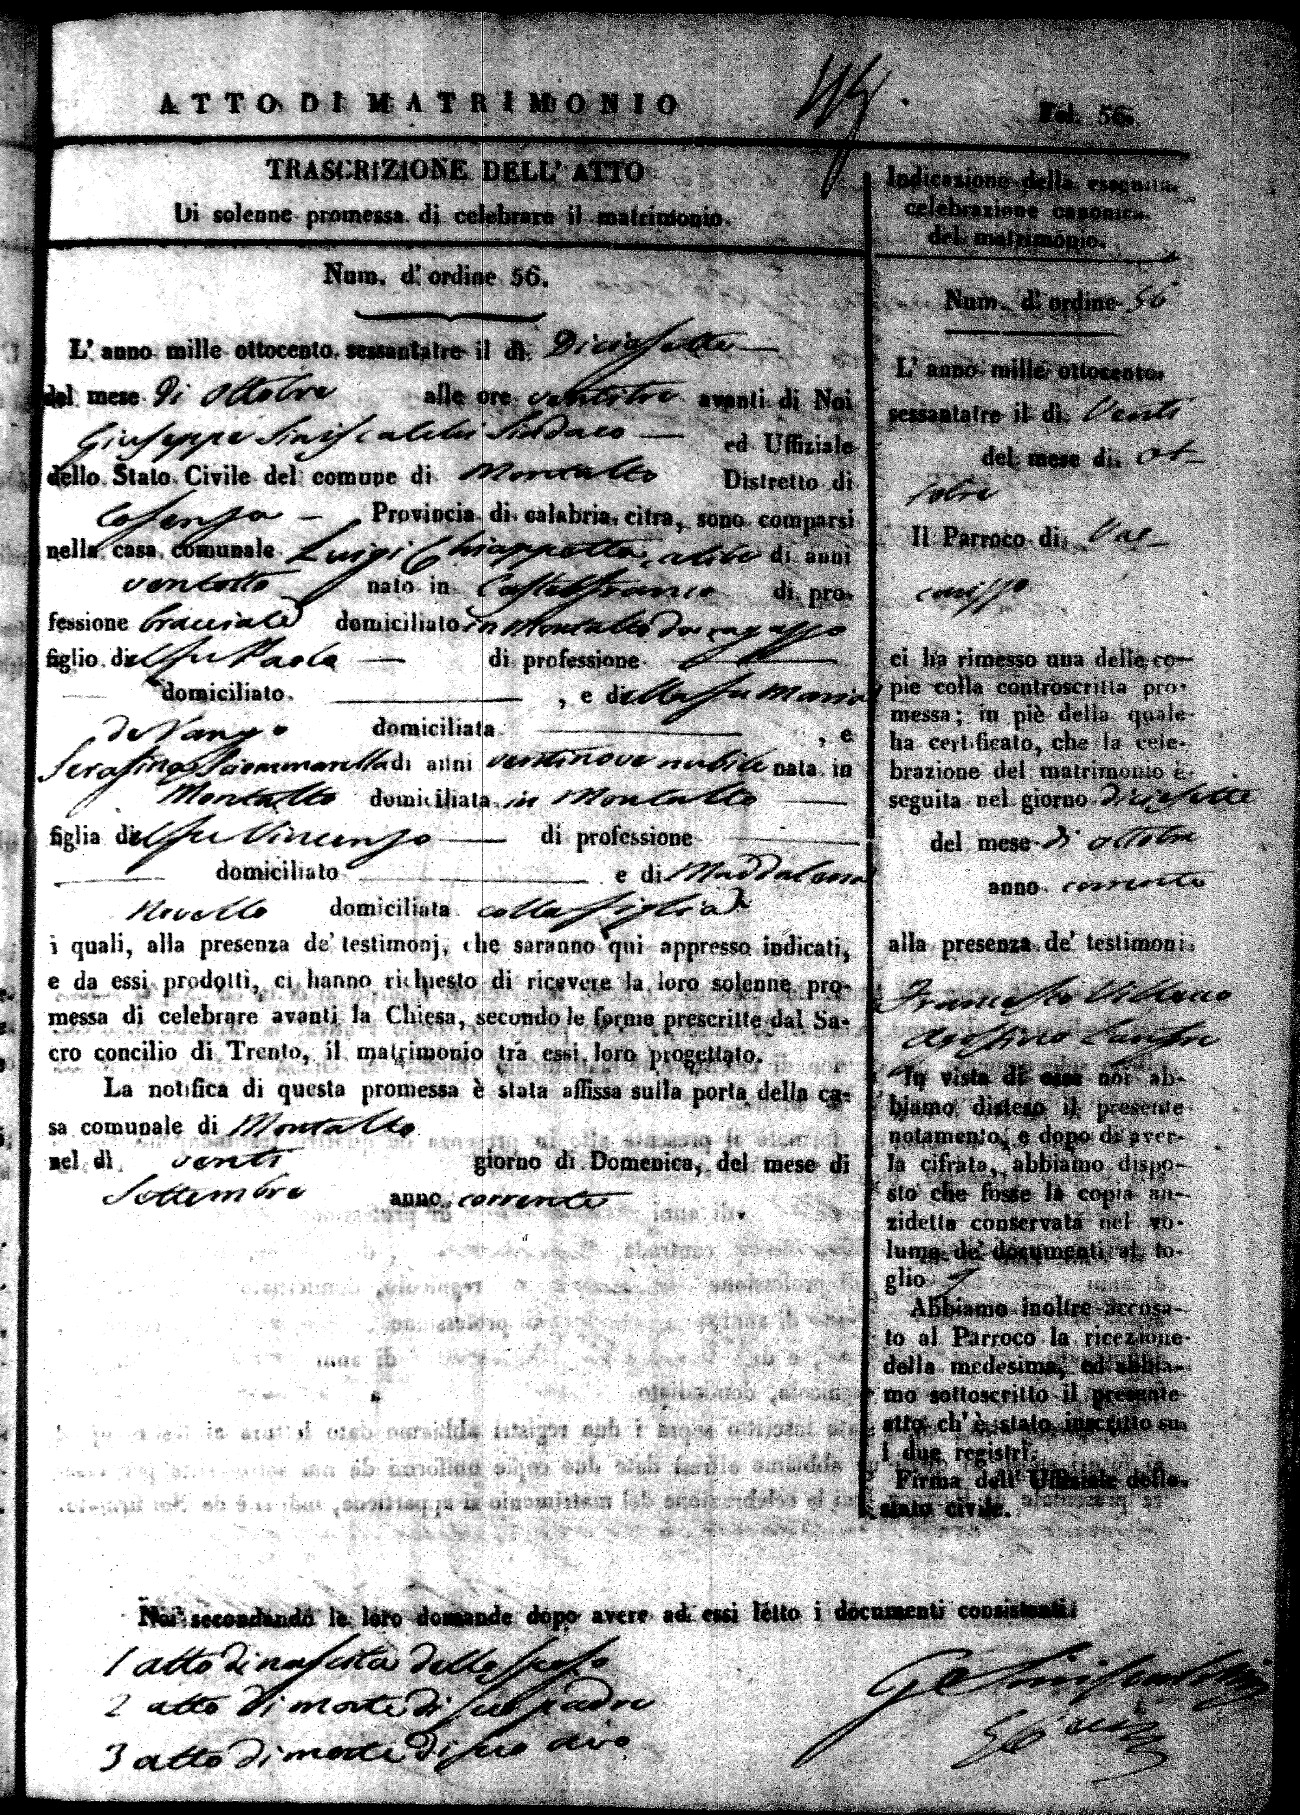 ATTO DI MATRIMONIO
Fol. 56.
TRASCRIZIONE DELL' ATTO
Di solenne promessa di celebrare il matrimonio.
Num. d'ordine 56.
L' anno mille ottocento sessantatre il dì Diciasette
del mese di Ottobre alle ore ventitre avanti di Noi
Giuseppe Siniscalchi Sindaco ed Uffiziale
dello Stato Civile del comune di Montalto Distretto di
Cosenza Provincia di calabria citra, sono comparsi
nella casa comunale Luigi Chiappetta, celibe di anni
ventotto nato in Castelfranco di pro-
fessione bracciale domiciliato in Montalto da ragazzo
figlio del fu Paolo di professione
domiciliato , e della fu Maria
domiciliata , e
Serafina Sciammarella di anni ventinove nubile nata in
Montalto domiciliata in Montalto
figlia del fu Vincenzo di professione
domiciliato e di Maddalena
Novello domiciliata colla figlia
i quali, alla presenza de' testimonj, che saranno qui appresso indicati,
e da essi prodotti, ci hanno richiesto di ricevere la loro solenne pro-
messa di celebrare avanti la Chiesa, secondo le forme prescritte dal Sa-
cro concilio di Trento, il matrimonio tra essi loro progettato.
La notifica di questa promessa è stata affissa sulla porta della ca-
sa comunale di Montalto
nel dì venti giorno di Domenica, del mese di
Settembre anno corrente
Noi secondando le loro domande dopo avere ad essi letto i documenti consistenti:
1 atto di nascita dello sposo
2 atto di morte di suo padre
3 atto di morte di suo avo
Indicazione della eseguita
celebrazione canonica
del matrimonio.
Num. d'ordine 56
L' anno mille ottocento
sessantatre il dì Venti
del mese di ot-
tobre
Il Parroco di Vac-
carizzo
ci ha rimesso una delle co-
pie colla controscritta pro-
messa; in piè della quale
ha certificato, che la cele-
brazione del matrimonio è
seguita nel giorno diciasette
del mese di ottobre
anno corrente
alla presenza de' testimoni
Francesco
In vista di esse noi ab-
biamo disteso il presente
notamento, e dopo di aver-
la cifrata, abbiamo dispo-
sto che fosse la copia an-
zidetta conservata nel vo-
lume de' documenti al fo-
glio
Abbiamo inoltre accusa-
to al Parroco la ricezione
della medesima, ed abbia-
mo sottoscritto il presente
atto ch' è stato inscritto su
i due registri.
Firma dell' Uffiziale dello
stato civile.